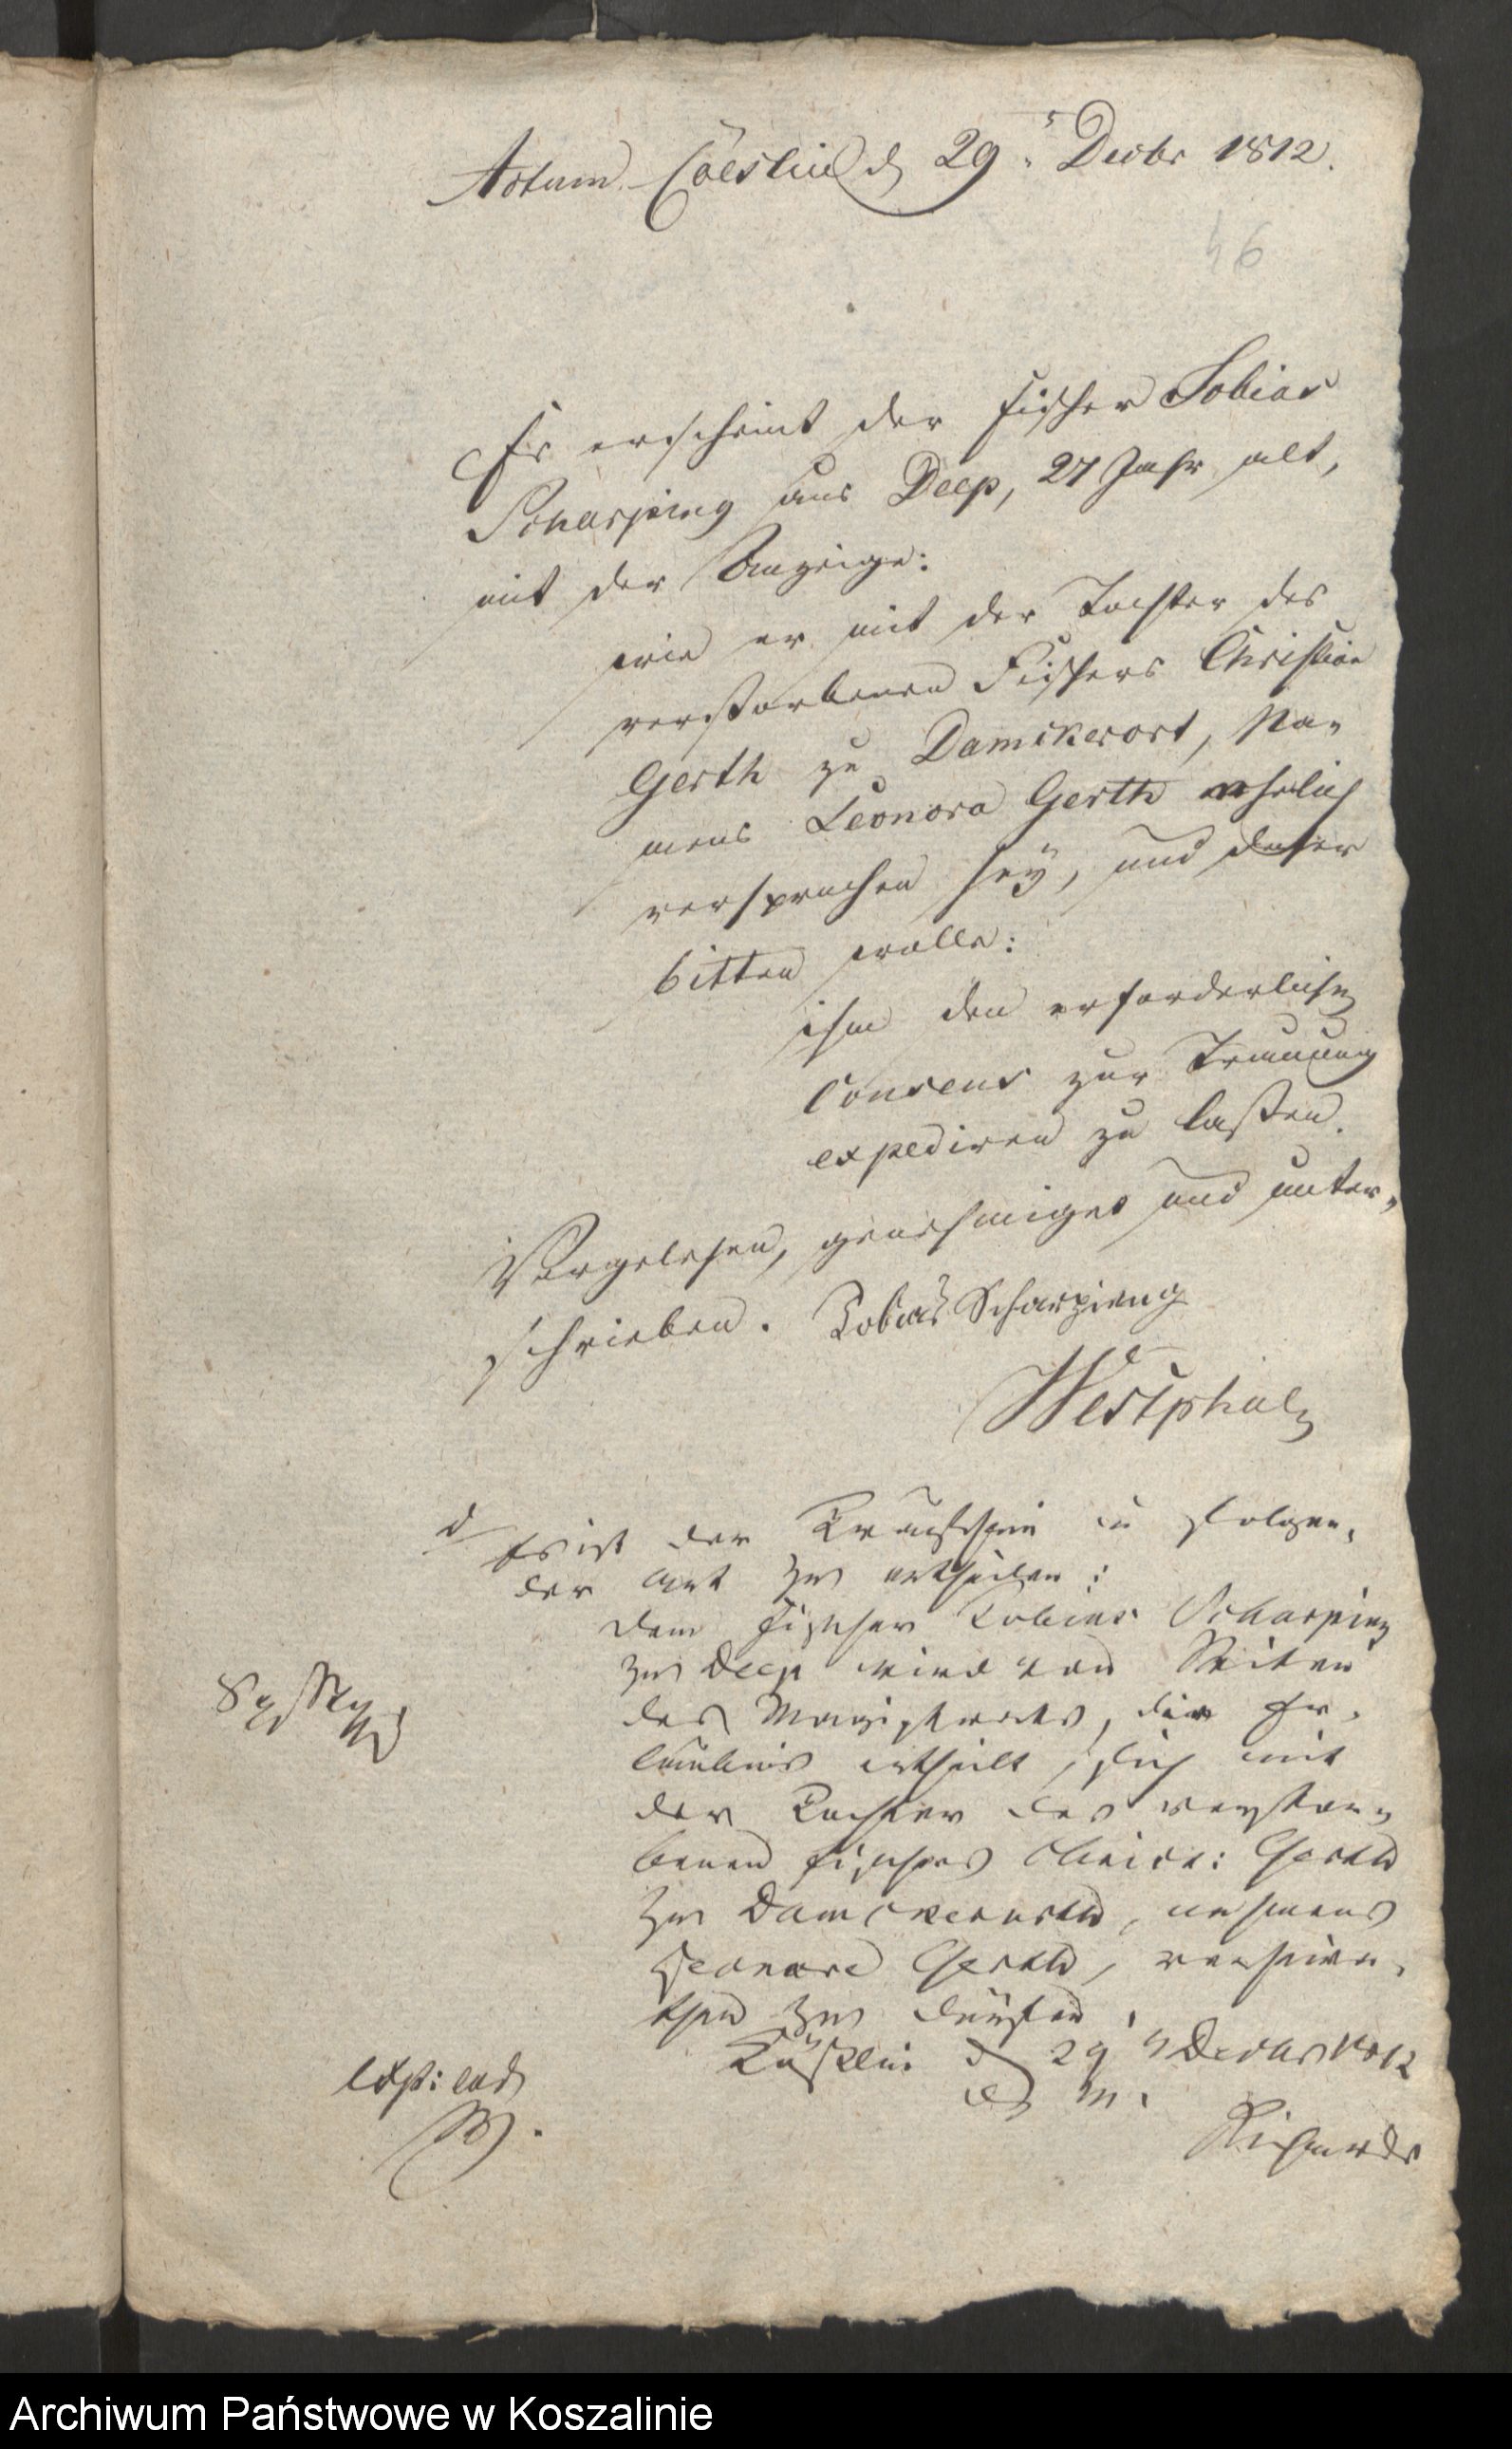 Actum Cöeslin d 29. Decbr 1812.
46
Es erscheint der Fischer Tobias
Scharping aus Deep, 27 Jahr alt,
mit der Anzeige:
wie er mit der Tochter des
verstorbenen Fischers Christian
Gerth zu Damckerort, Na-
mens Leonora Gerth ehelich
versprochen sey, und daher
bitten wolle:
ihm den erforderlichen
Consens zur Trauung
expediren zu laßen.
Vorgelesen, genehmiget und unter-
schrieben. Tobias Scharpieng
Westphal
d
Es ist der Trauschein in folgen-
der Art zu ertheilen:
Dem Fischer Tobias Scharping
zu Deep wird von Seiten
des Magistrats, die Er-
laubnis ertheilt, sich mit
der Tochter des verstor-
benen Fischers Christ: Gerth
zu Damckerorth, nahmens
Leonore Gerth, verheira-
then zu dürfen.
Cöslin d 29 Decbr 1812
d M.
exp: eod
Richards
Archiwum Państwowe w Koszalinie